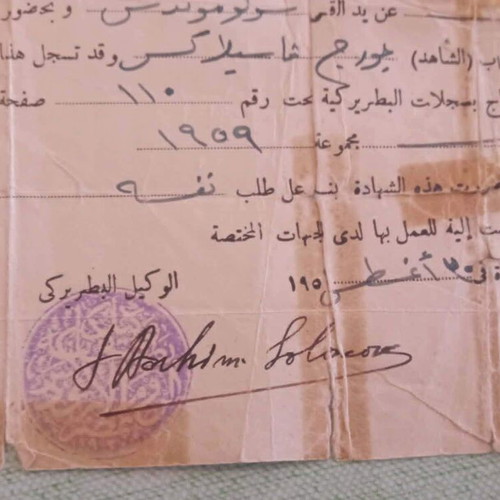 عن يد القس سولوموندس و بحضور
اب (الشاهد) جورج فاسيلاكس وقد تسجل هذا
بسجلات البطريركية تحت رقم ١١٠ صفحة
مجموعة ١٩٥٩
هذه الشهادة بناء على طلب نفسه
إليه للعمل بها لدى الجهات المختصة
فى ٣٥ أغسطس ١٩٥
الوكيل البطريركى